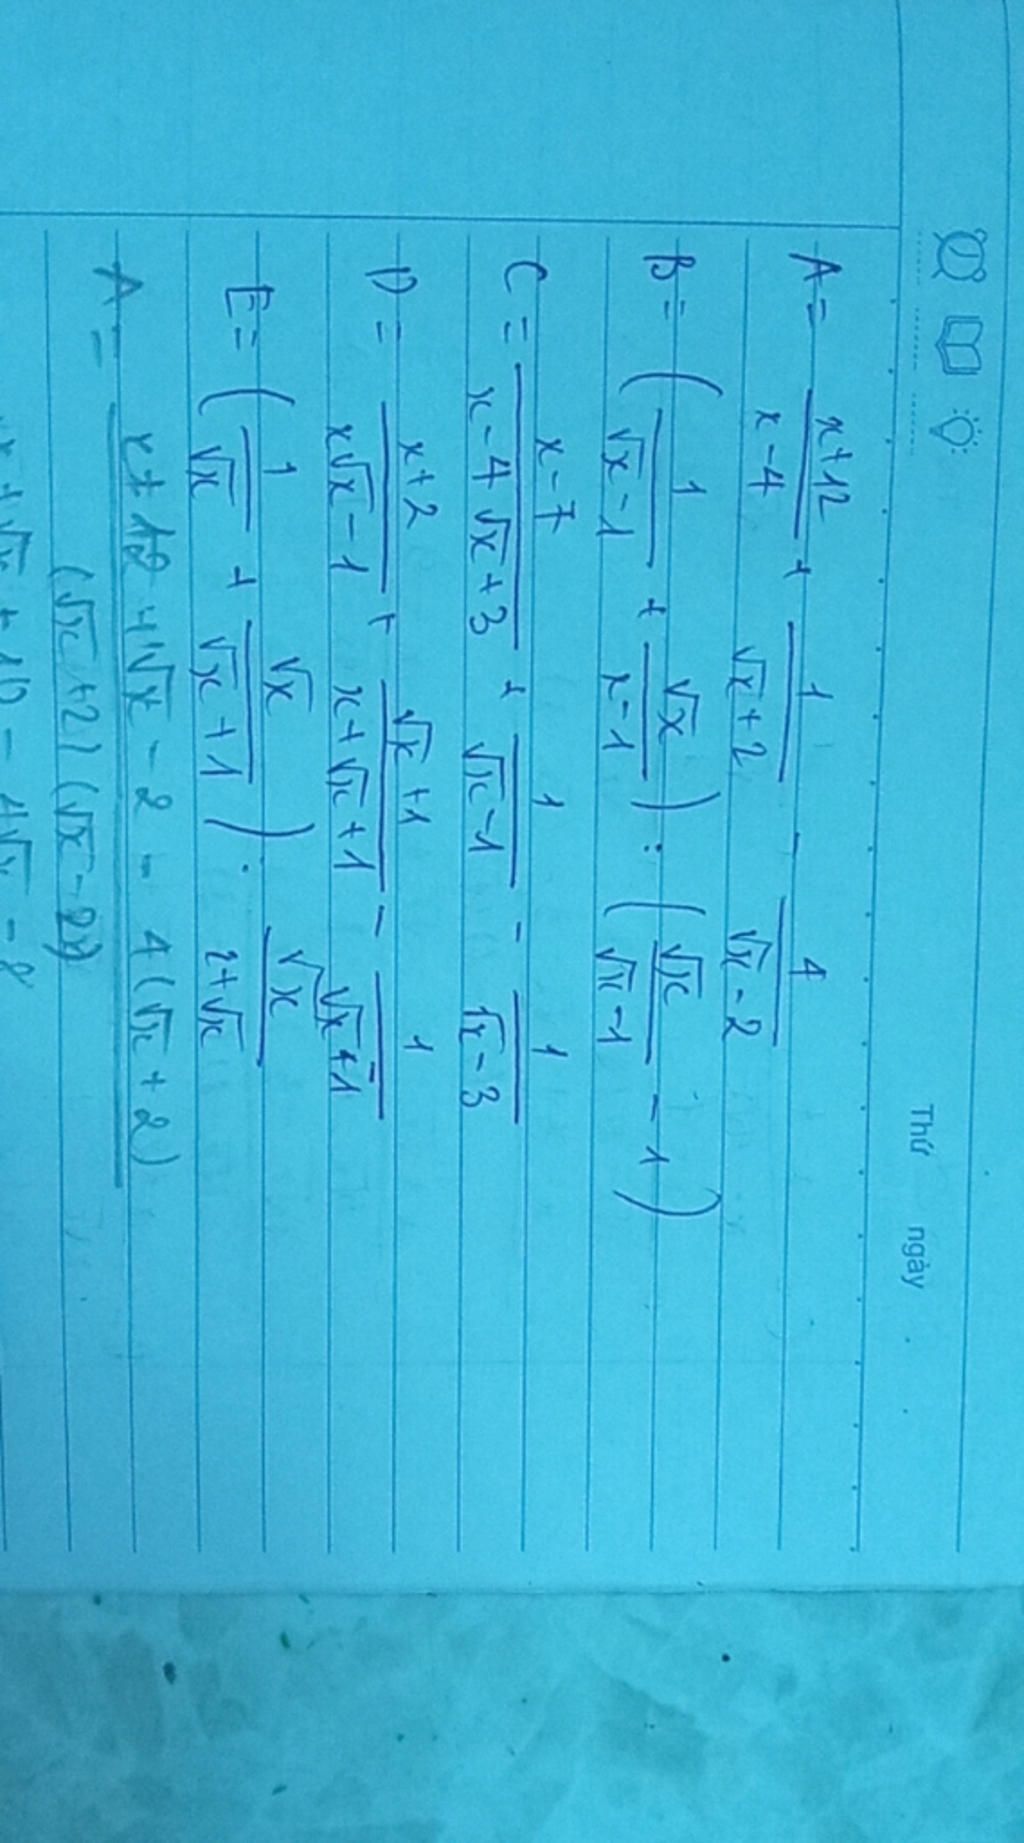 Thứ ngày
A = \frac{x+12}{x-4} + \frac{1}{\sqrt{x}+2} - \frac{4}{\sqrt{x}-2}
B = (\frac{1}{\sqrt{x}-1} + \frac{\sqrt{x}}{x-1}) : (\frac{\sqrt{x}}{\sqrt{x}-1} - 1)
C = \frac{x-7}{x-4\sqrt{x}+3} + \frac{1}{\sqrt{x}-1} - \frac{1}{\sqrt{x}-3}
D = \frac{x+2}{x\sqrt{x}-1} + \frac{\sqrt{x}+1}{x+\sqrt{x}+1} - \frac{1}{\sqrt{x}+1}
E = (\frac{1}{\sqrt{x}} + \frac{\sqrt{x}}{\sqrt{x}+1}) : \frac{\sqrt{x}}{x+\sqrt{x}}
A = \frac{x+12+\sqrt{x}-2-4(\sqrt{x}+2)}{(\sqrt{x}+2)(\sqrt{x}-2)}
x+\sqrt{x}+10-4\sqrt{x}-8